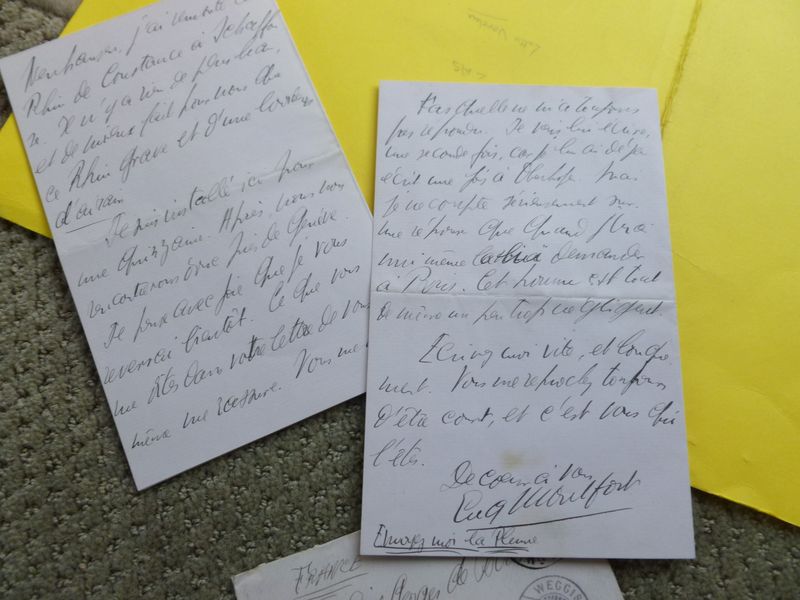 Neuhausen, j'ai remonté le
Rhin de Constance à Schaffou
se. Je n'y a rien de plus beau,
et de mieux fait pour nous que
ce Rhin grave et d'une couleur
d'airain
Je suis installé ici pour
une quinzaine. Après, nous nous
rencontrerons être près de Genève.
Je pense avec joie que je vous
reverrai bientôt. Ce que vous
me dites dans votre lettre de vous
même me rassure. Vous me
Fasquelle ne m'a toujours
pas répondu. Je vais lui écrire
une seconde fois, car je lui ai déjà
écrit une fois à
Je ne compte sérieusement sur
une réponse que quand j'irai
moi même la lui demander
à Paris. Cet homme est tout
de même un peu trop négligent.
Ecrivez moi vite, et longue
ment. Vous me reprochez toujours
d'être court, et c'est vous qui
l'êtes.
De coeur à vous
Eug Montfort
Envoyez moi la Plume
FRANCE
Georges de
WEGGIS